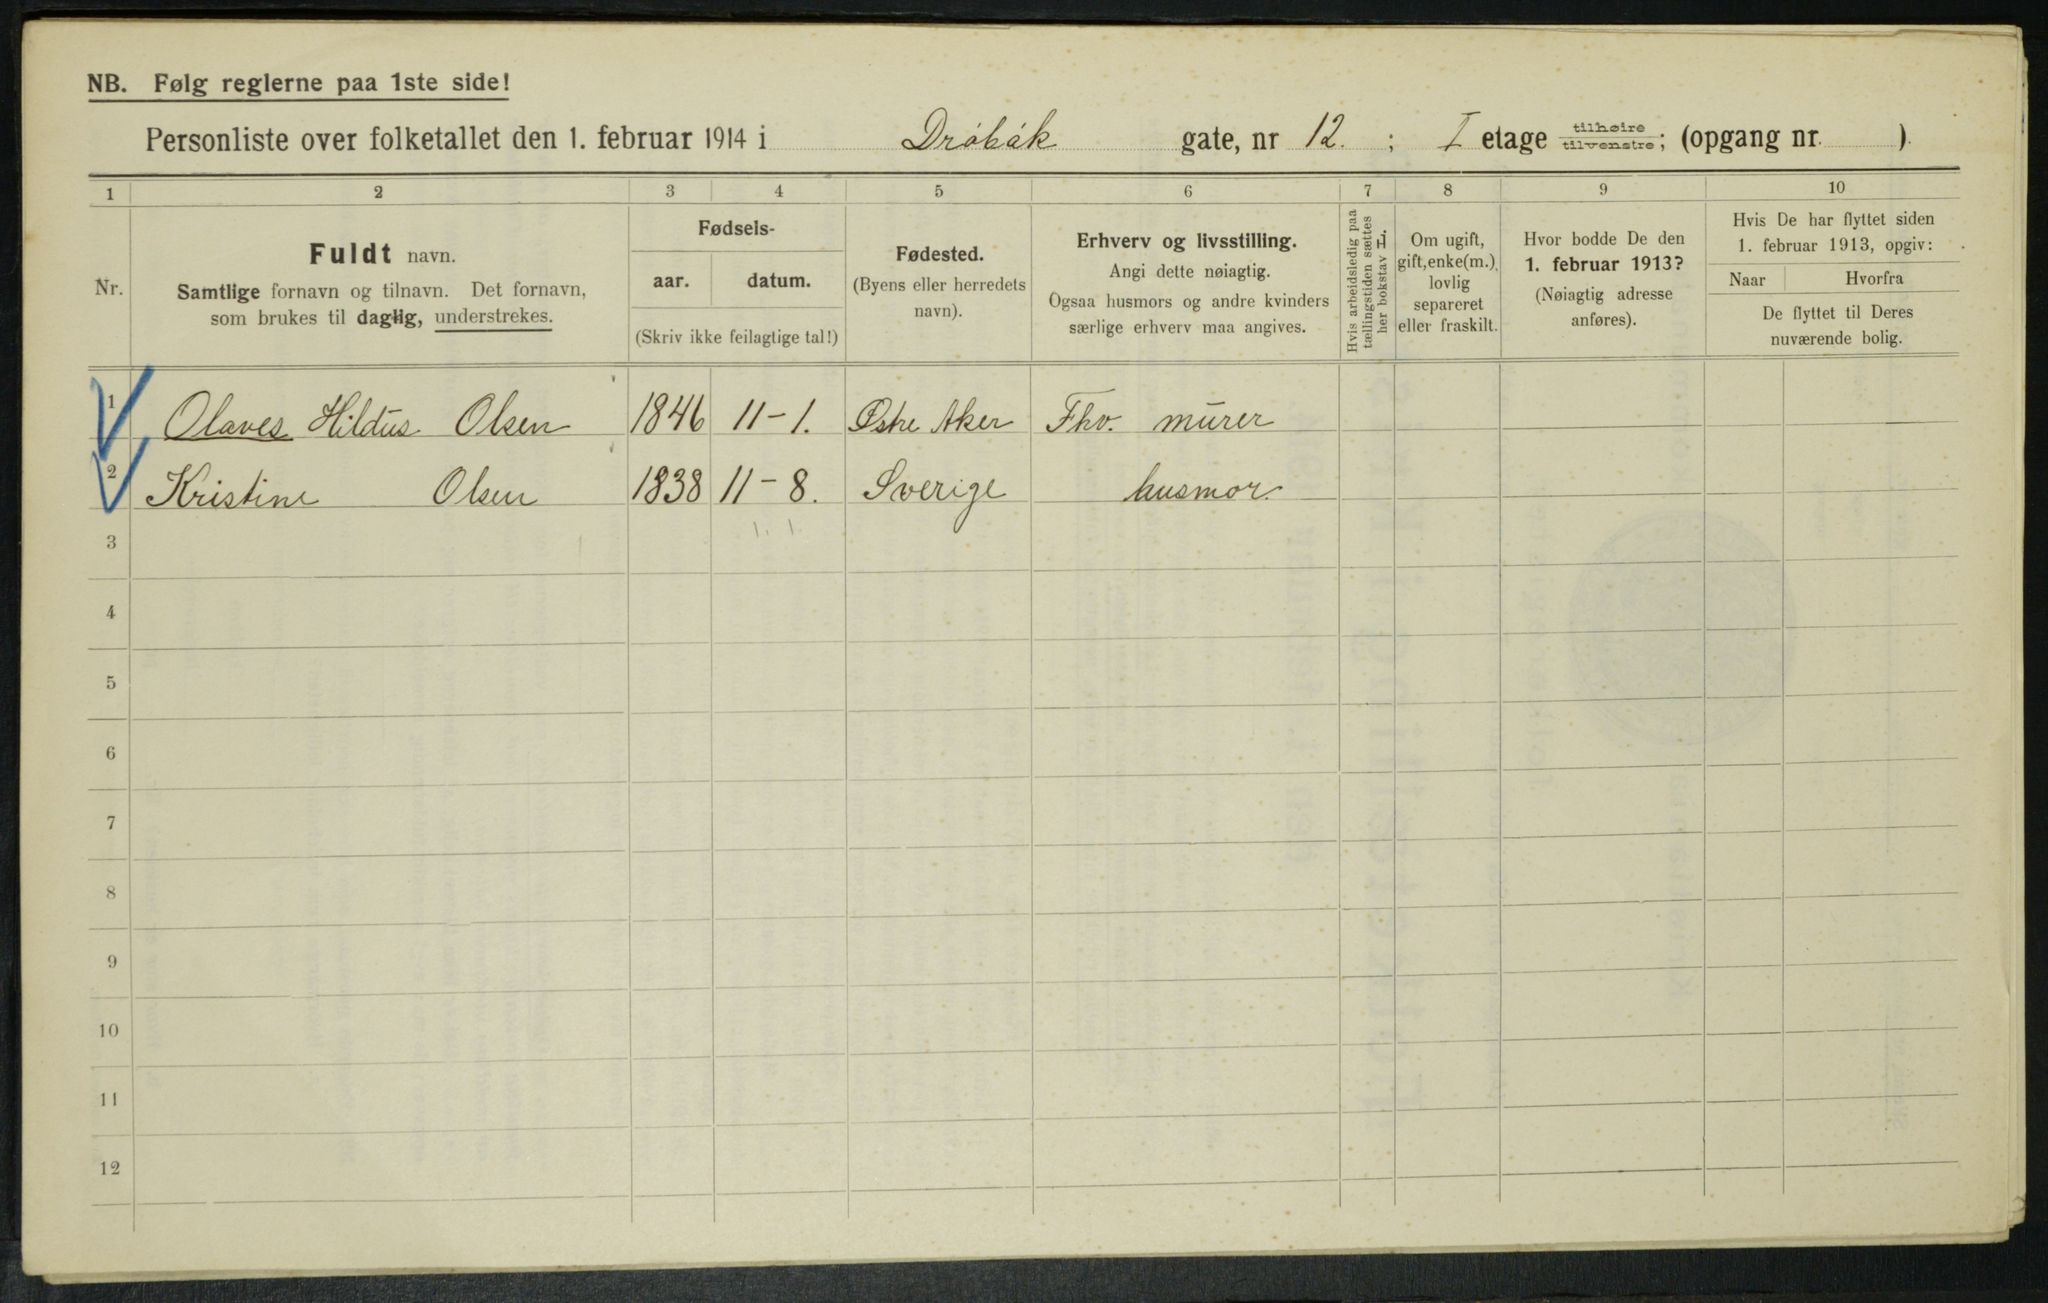 NB. Følg reglerne paa 1ste side!
Personliste over folketallet den 1. februar 1914 i Drøbak gate, nr 12. ; I etage tilhøire tilvenstre; (opgang nr. ).
1 2 3 4 5 6 7 8 9 10
Nr.
Fuldt navn.
Samtlige fornavn og tilnavn. Det fornavn,
som brukes til daglig, understrekes.
Fødsels-
aar. datum.
(Skriv ikke feilagtige tal!)
Fødested.
(Byens eller herredets
navn).
Erhverv og livsstilling.
Angi dette nøiagtig.
Ogsaa husmors og andre kvinders
særlige erhverv maa angives.
Hvis arbeidsledig paa
tællingstiden sættes
her bokstav L.
Om ugift,
gift, enke(m.),
lovlig
separeret
eller fraskilt.
Hvor bodde De den
1. februar 1913?
(Nøiagtig adresse
anføres).
Hvis De har flyttet siden
1. februar 1913, opgiv:
Naar Hvorfra
De flyttet til Deres
nuværende bolig.
1 Olaves Hildus Olsen 1846 11-1. Østre Aker Fhv. murer
2 Kristine Olsen 1838 11-8. Sverige husmor.
1. 1
3
4
5
6
7
8
9
10
11
12